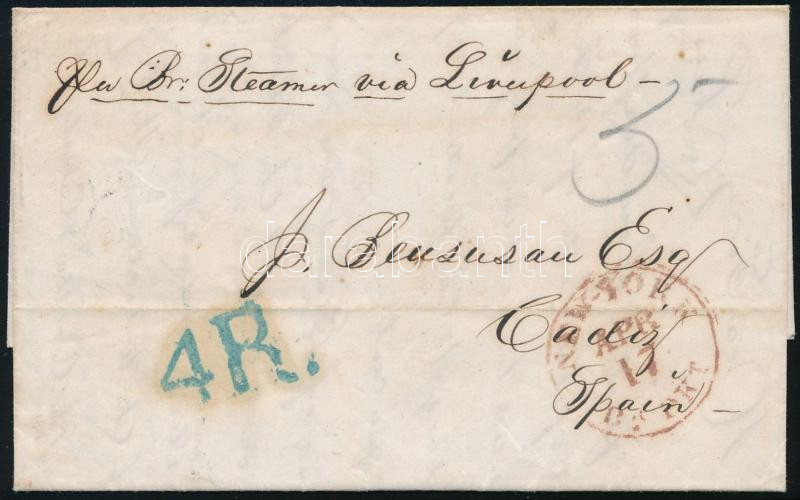 Per Br: Steamer via Liverpool –
5
J. Bensusan Esq
Cadiz
Spain –
4R.
NEW-YORK
APR
17
BR PKT
darabanth